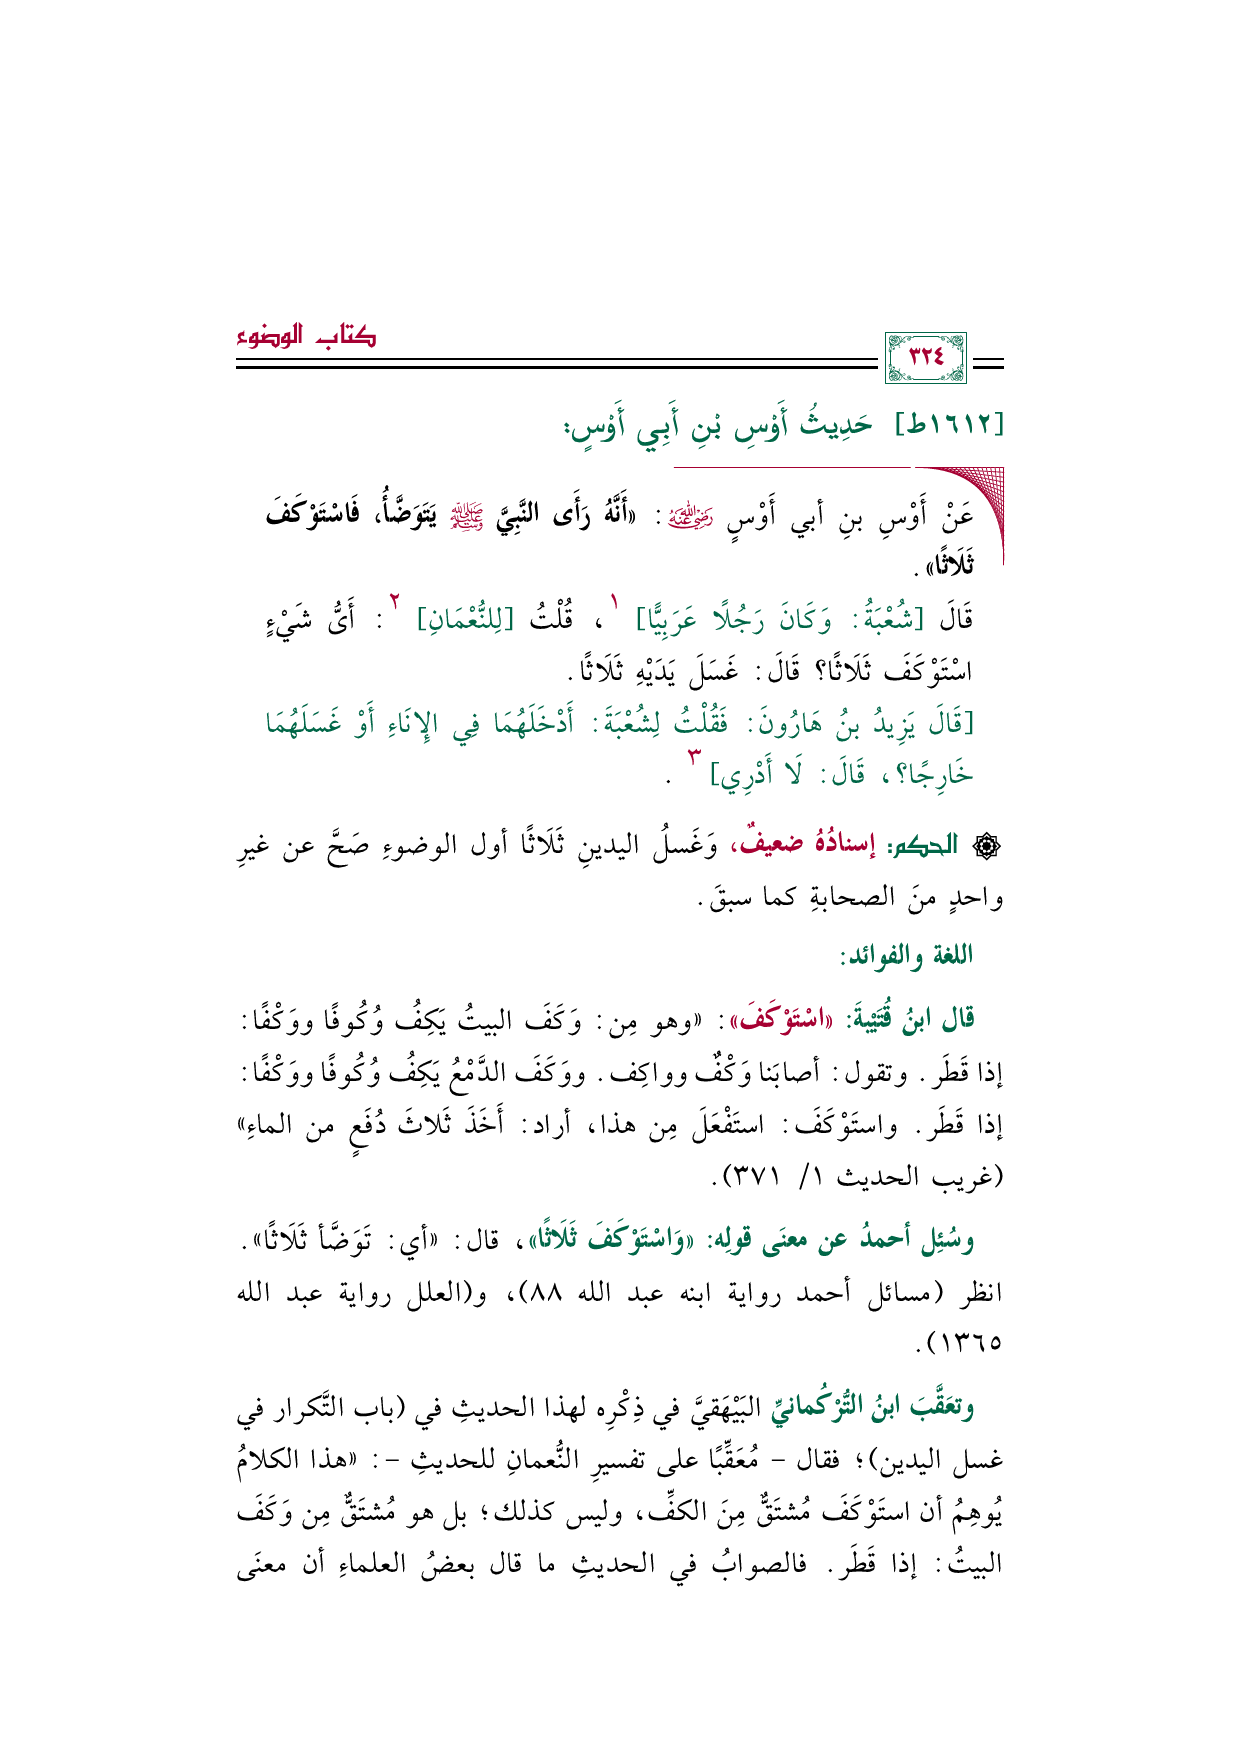 كتاب الوضوء
٣٢٤
[١٦١٢ط] حَدِيثُ أَوْسِ بْنِ أَبِي أَوْسٍ:
عَنْ أَوْسِ بنِ أبي أَوْسٍ رضي الله عنه: «أَنَّهُ رَأَى النَّبِيَّ ﷺ يَتَوَضَّأُ، فَاسْتَوْكَفَ
ثَلَاثًا».
قَالَ [شُعْبَةُ: وَكَانَ رَجُلًا عَرَبِيًّا] ١، قُلْتُ [لِلنُّعْمَانِ] ٢: أَىُّ شَيْءٍ
اسْتَوْكَفَ ثَلَاثًا؟ قَالَ: غَسَلَ يَدَيْهِ ثَلَاثًا.
[قَالَ يَزِيدُ بنُ هَارُونَ: فَقُلْتُ لِشُعْبَةَ: أَدْخَلَهُمَا فِي الإِنَاءِ أَوْ غَسَلَهُمَا
خَارِجًا؟، قَالَ: لَا أَدْرِي] ٣.
الحكم: إسنادُهُ ضعيفٌ، وَغَسلُ اليدينِ ثَلَاثًا أول الوضوءِ صَحَّ عن غيرِ
واحدٍ منَ الصحابةِ كما سبقَ.
اللغة والفوائد:
قال ابنُ قُتَيْبةَ: «اسْتَوْكَفَ»: «وهو مِن: وَكَفَ البيتُ يَكِفُ وُكُوفًا ووَكْفًا:
إذا قَطَر. وتقول: أصابَنا وَكْفٌ وواكِف. ووَكَفَ الدَّمْعُ يَكِفُ وُكُوفًا ووَكْفًا:
إذا قَطَر. واستَوْكَفَ: استَفْعَلَ مِن هذا، أراد: أَخَذَ ثَلاثَ دُفَعٍ من الماءِ»
(غريب الحديث ١/ ٣٧١).
وسُئِل أحمدُ عن معنَى قولِه: «وَاسْتَوْكَفَ ثَلَاثًا»، قال: «أي: تَوَضَّأ ثَلَاثًا».
انظر (مسائل أحمد رواية ابنه عبد الله ٨٨)، و(العلل رواية عبد الله
١٣٦٥).
وتعَقَّبَ ابنُ التُّرْكُمانيِّ البَيْهَقيَّ في ذِكْرِه لهذا الحديثِ في (باب التَّكرار في
غسل اليدين)؛ فقال - مُعَقِّبًا على تفسيرِ النُّعمانِ للحديثِ -: «هذا الكلامُ
يُوهِمُ أن استَوْكَفَ مُشتَقٌّ مِنَ الكفِّ، وليس كذلك؛ بل هو مُشتَقٌّ مِن وَكَفَ
البيتُ: إذا قَطَر. فالصوابُ في الحديثِ ما قال بعضُ العلماءِ أن معنَى